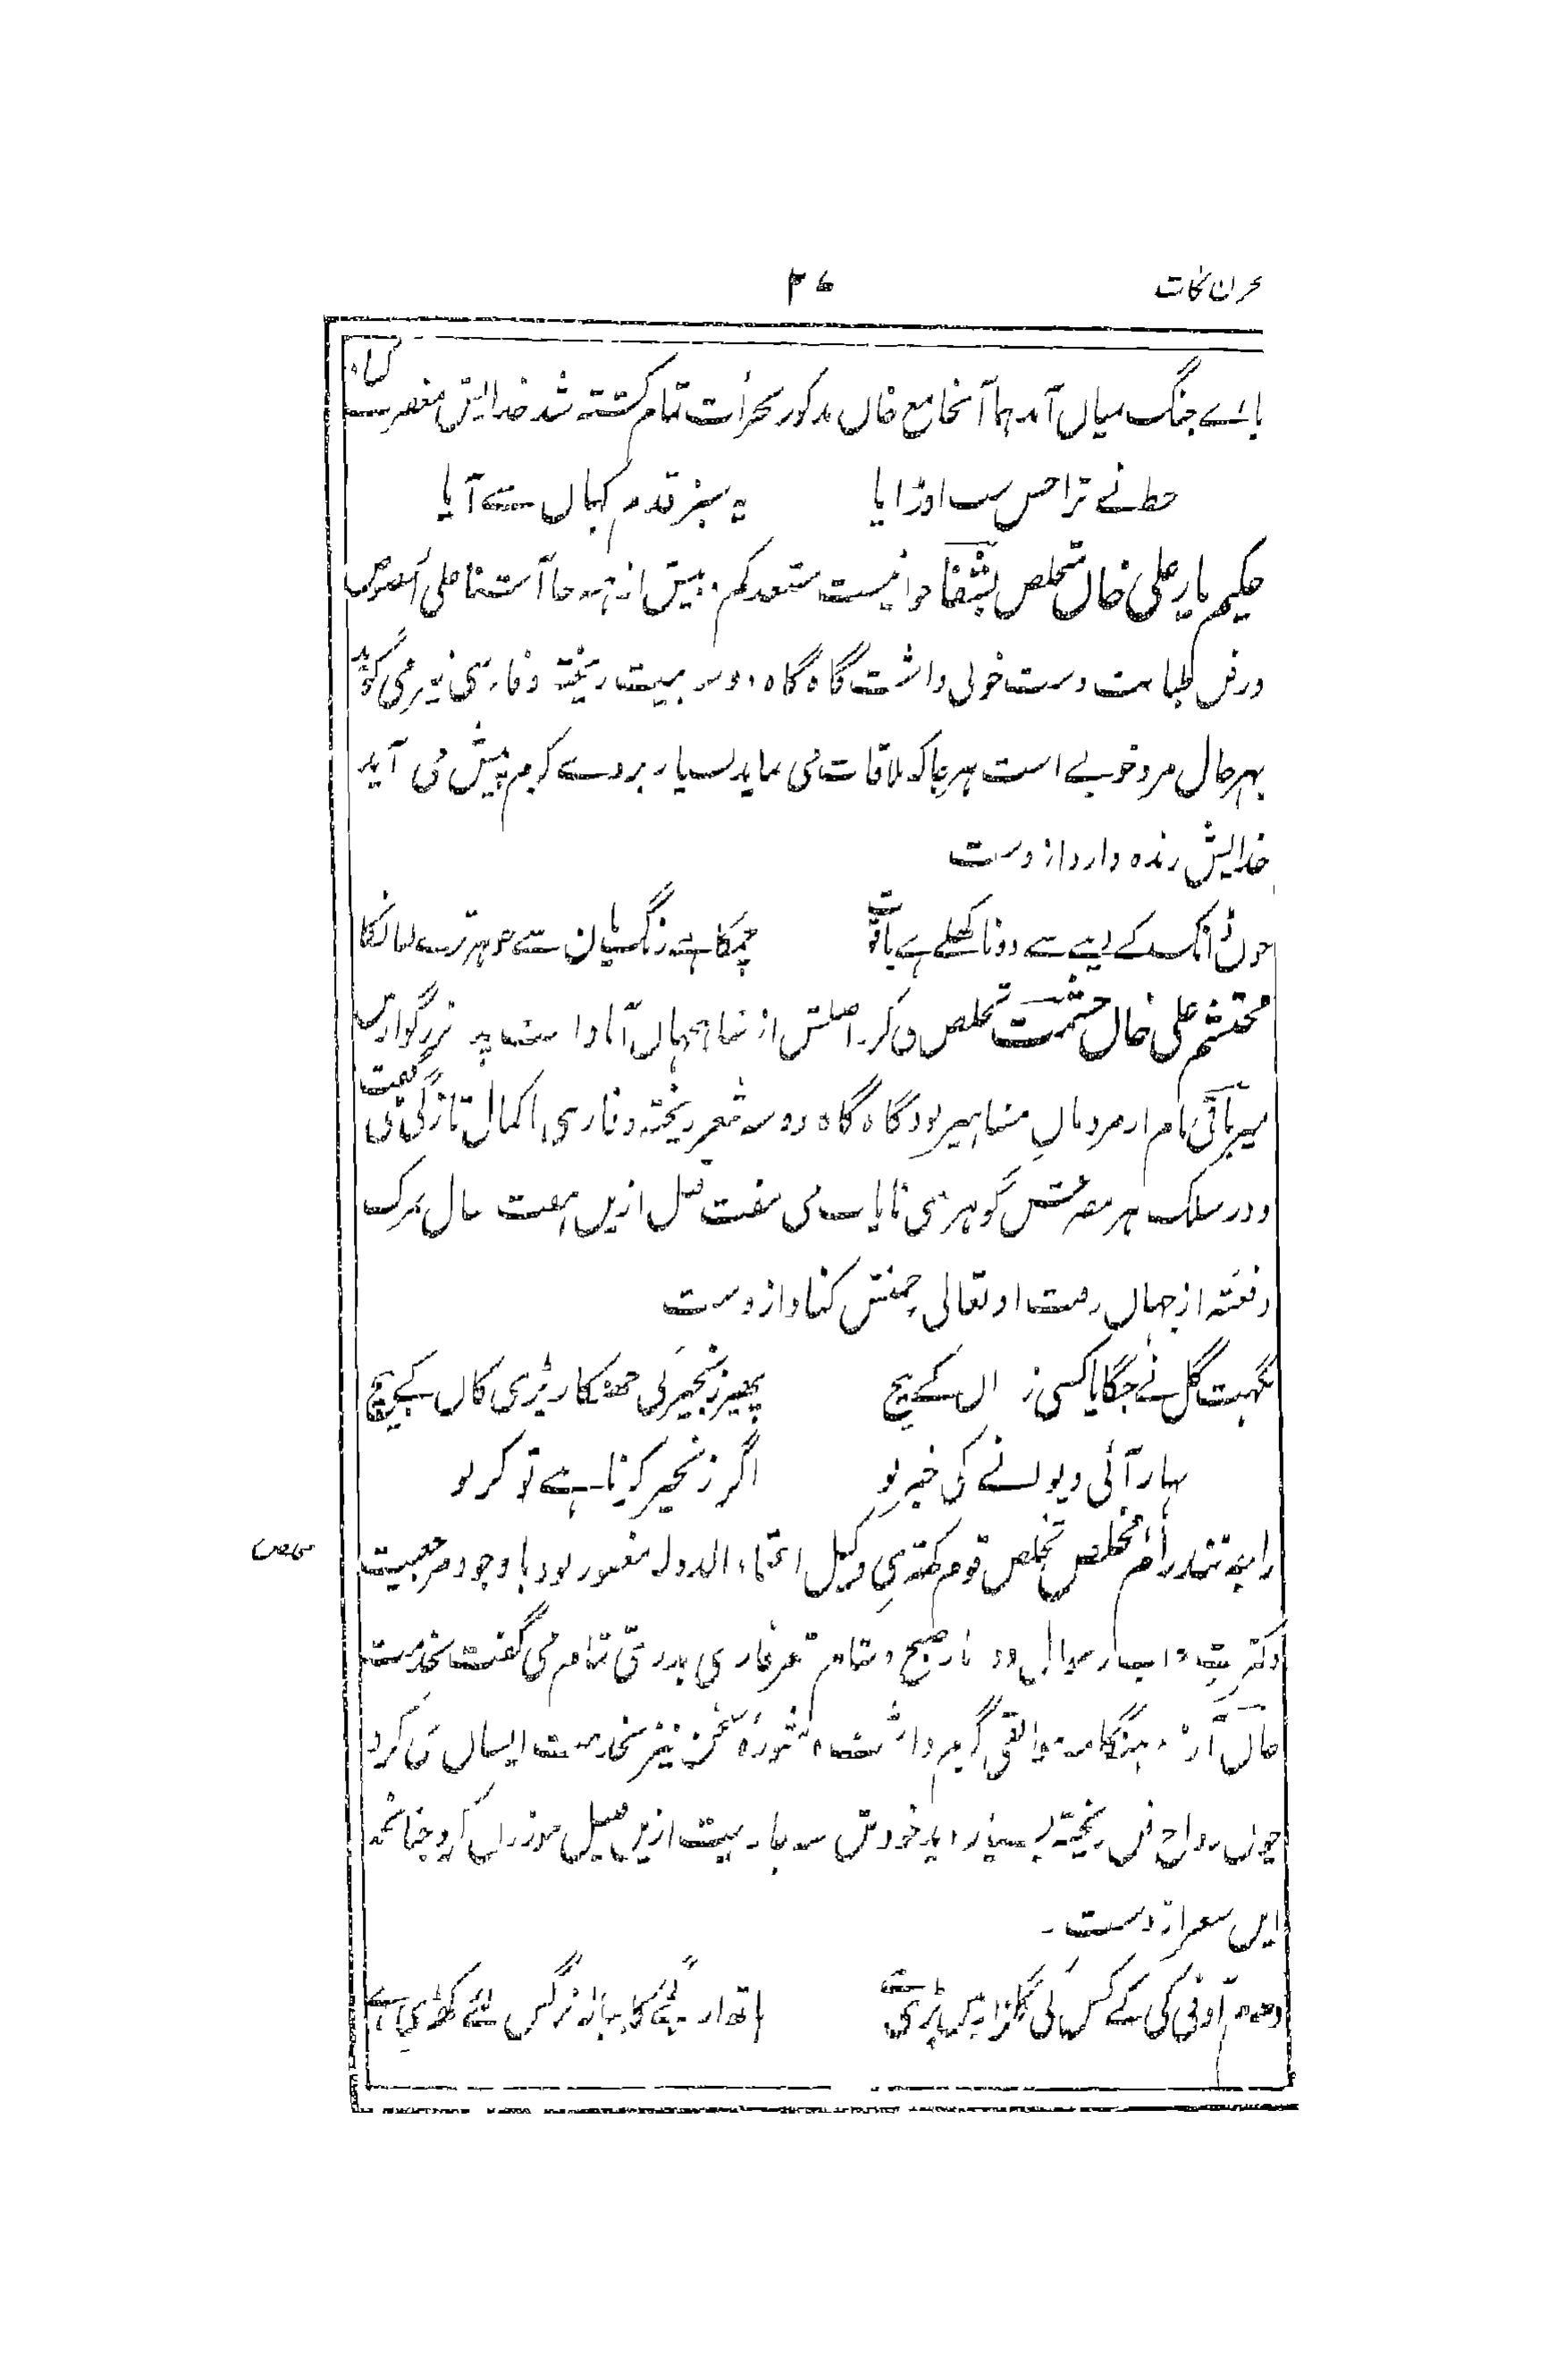 مخزن نکات
۳۶
پائے جنگ میاں آمد ہما آنجا مع خان مذکور بجرأت تمام کشتہ شد خدایش مغفرت کناد
خط نے ترا حسن سب اوڑایا یہ سبز قدم کہاں سے آیا
حکیم یار علی خان متخلص بشفا جوانیست مستعد کم و بیش از ہمہ جا آشنا علی الخصوص
در فن طبابت دست خوبی داشت گاہ گاہ دو سہ بیت ریختہ و فارسی نیز می گوید
بہر حال مرد خوبے است ہر جا کہ ملاقات می نماید بسیار بروے کرم پیش می آید
خدایش زندہ دارد ازوست
جوں ڈانک کے دیے سے دونا کھلے ہے یاقوت چمکا ہے رنگ پان سے جوہر ترے لباں کا
محتشم علی خاں حشمت تخلص می کرد اصلش از شاہجہاں آباد است پدر بزرگوارش
میر باقی نام از مردمان مشاہیر بود گاہ گاہ دو سہ شعر ریختہ و فارسی باکمال تازگی می گفت
و در سلک ہر مصرعش گوہری نایاب می سفت قبل ازیں ہفت سال بمرگ
رفتہ از جہاں رفت او تعالی چمنش کناد ازوست
نگہت گل نے جگایا کسی زنداں کے بیچ پھیر زنجیر کی جھنکار پڑی کان کے بیچ
بہار آئی دیوانے کی خبر لو اگر زنجیر کرنا ہے تو کر لو
رایہ انند رام مخلص تخلص قوم کھتری وکیل اعتماد الدولہ مغفور بود باوجود جمعیت
مخلص
و کثرت اسباب سوال دو بار صبح و شام شعر فارسی بدرستی تمام می گفت بخدمت
خان آرزو ہنگامہ موافقی گرم داشت مشورۂ سخن نیز بخدمت ایشاں می کرد
چوں رواج فن ریختہ بسیار دید خودش سہ چار بیت ازیں قبیل موزوں کرد چنانچہ
ایں شعر ازوست۔
دھوم آونے کی کے کس کی گلزار میں پڑی ہے ہاتھ ارگجے کا پیالہ نرگس لئے کھڑی ہے